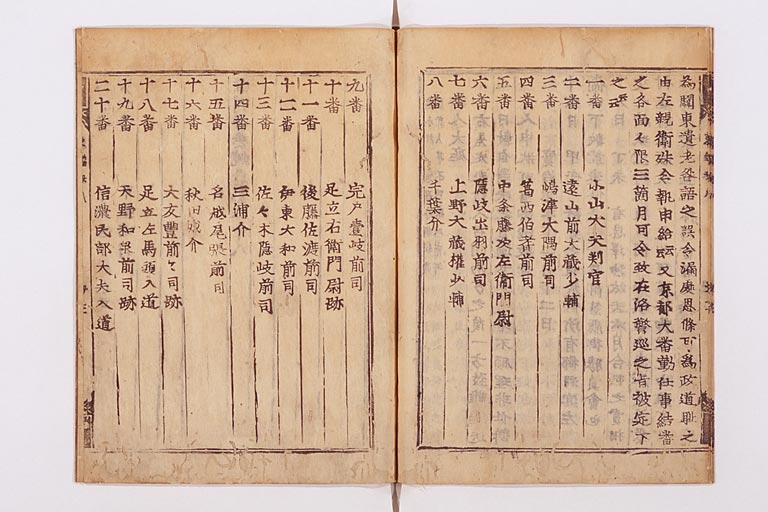 為關東遺老各語之誤令漏廣恩條可為政道耻之
由在親衛殊令執申給云又京都大番勤仕事結番
之各面々限三箇月可令致在洛警巡之旨被定下
之云
一番　小山大夫判官
二番　遠山前大藏少輔
三番　嶋津大隅前司
四番　葛西伯耆前司
五番　中条藤次左衛門尉
六番　隱岐出羽前司
七番　上野大藏權少輔
八番　千葉介
九番　完戸壹岐前司
十番　足立右衛門尉跡
十一番　後藤佐渡前司
十二番　伊東大和前司
十三番　佐々木隱岐前司
十四番　三浦介
十五番　名越尾張前司
十六番　秋田城介
十七番　大友豐前々司跡
十八番　足立左馬頭入道
十九番　天野和泉前司跡
二十番　信濃民部大夫入道